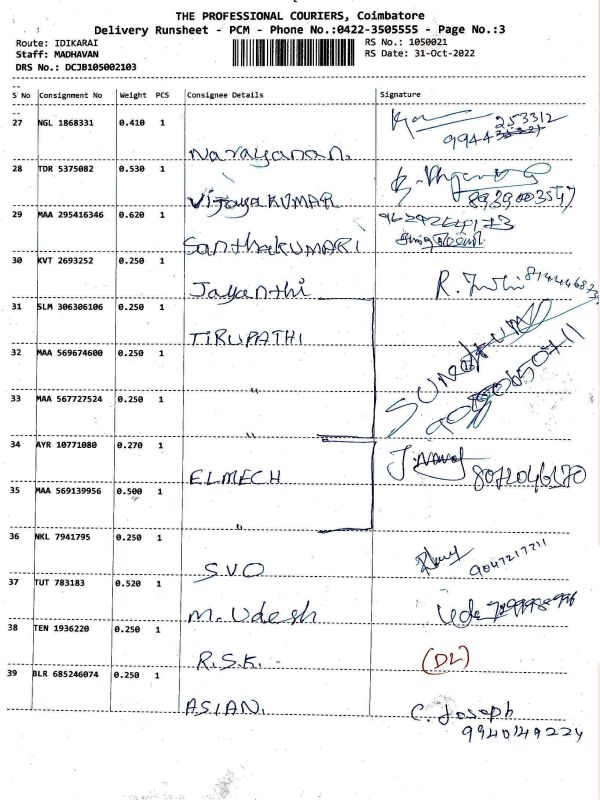 THE PROFESSIONAL COURIERS, Coimbatore
Delivery Runsheet - PCM - Phone No.:0422-3505555 - Page No.:3
Route: IDIKARAI RS No.: 1050021
Staff: MADHAVAN RS Date: 31-Oct-2022
DRS No.: DCJB105002103
S No Consignment No Weight PCS Consignee Details Signature
27 NGL 1868331 0.410 1
253312
99443
Narayanan.
28 TDR 5375082 0.530 1
VijayaKUMAR 8939003547
29 MAA 295416346 0.620 1
SanthaKUMARI
30 KVT 2693252 0.250 1
Jayanthi R.
31 SLM 306306106 0.250 1
TIRUPATHI
32 MAA 569674600 0.250 1
"
33 MAA 567727524 0.250 1
"
34 AYR 10771080 0.270 1
ELMECH
35 MAA 569139956 0.500 1
"
36 NKL 7941795 0.250 1
S.V.O 9047217211
37 TUT 783183 0.520 1
M. Udesh
38 TEN 1936220 0.250 1
R.S.K. (DL)
39 BLR 685246074 0.250 1
ASIAN. C. Joseph
9940149224